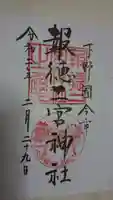 下野國今市
報徳二宮神社
令和二年二月二十九日